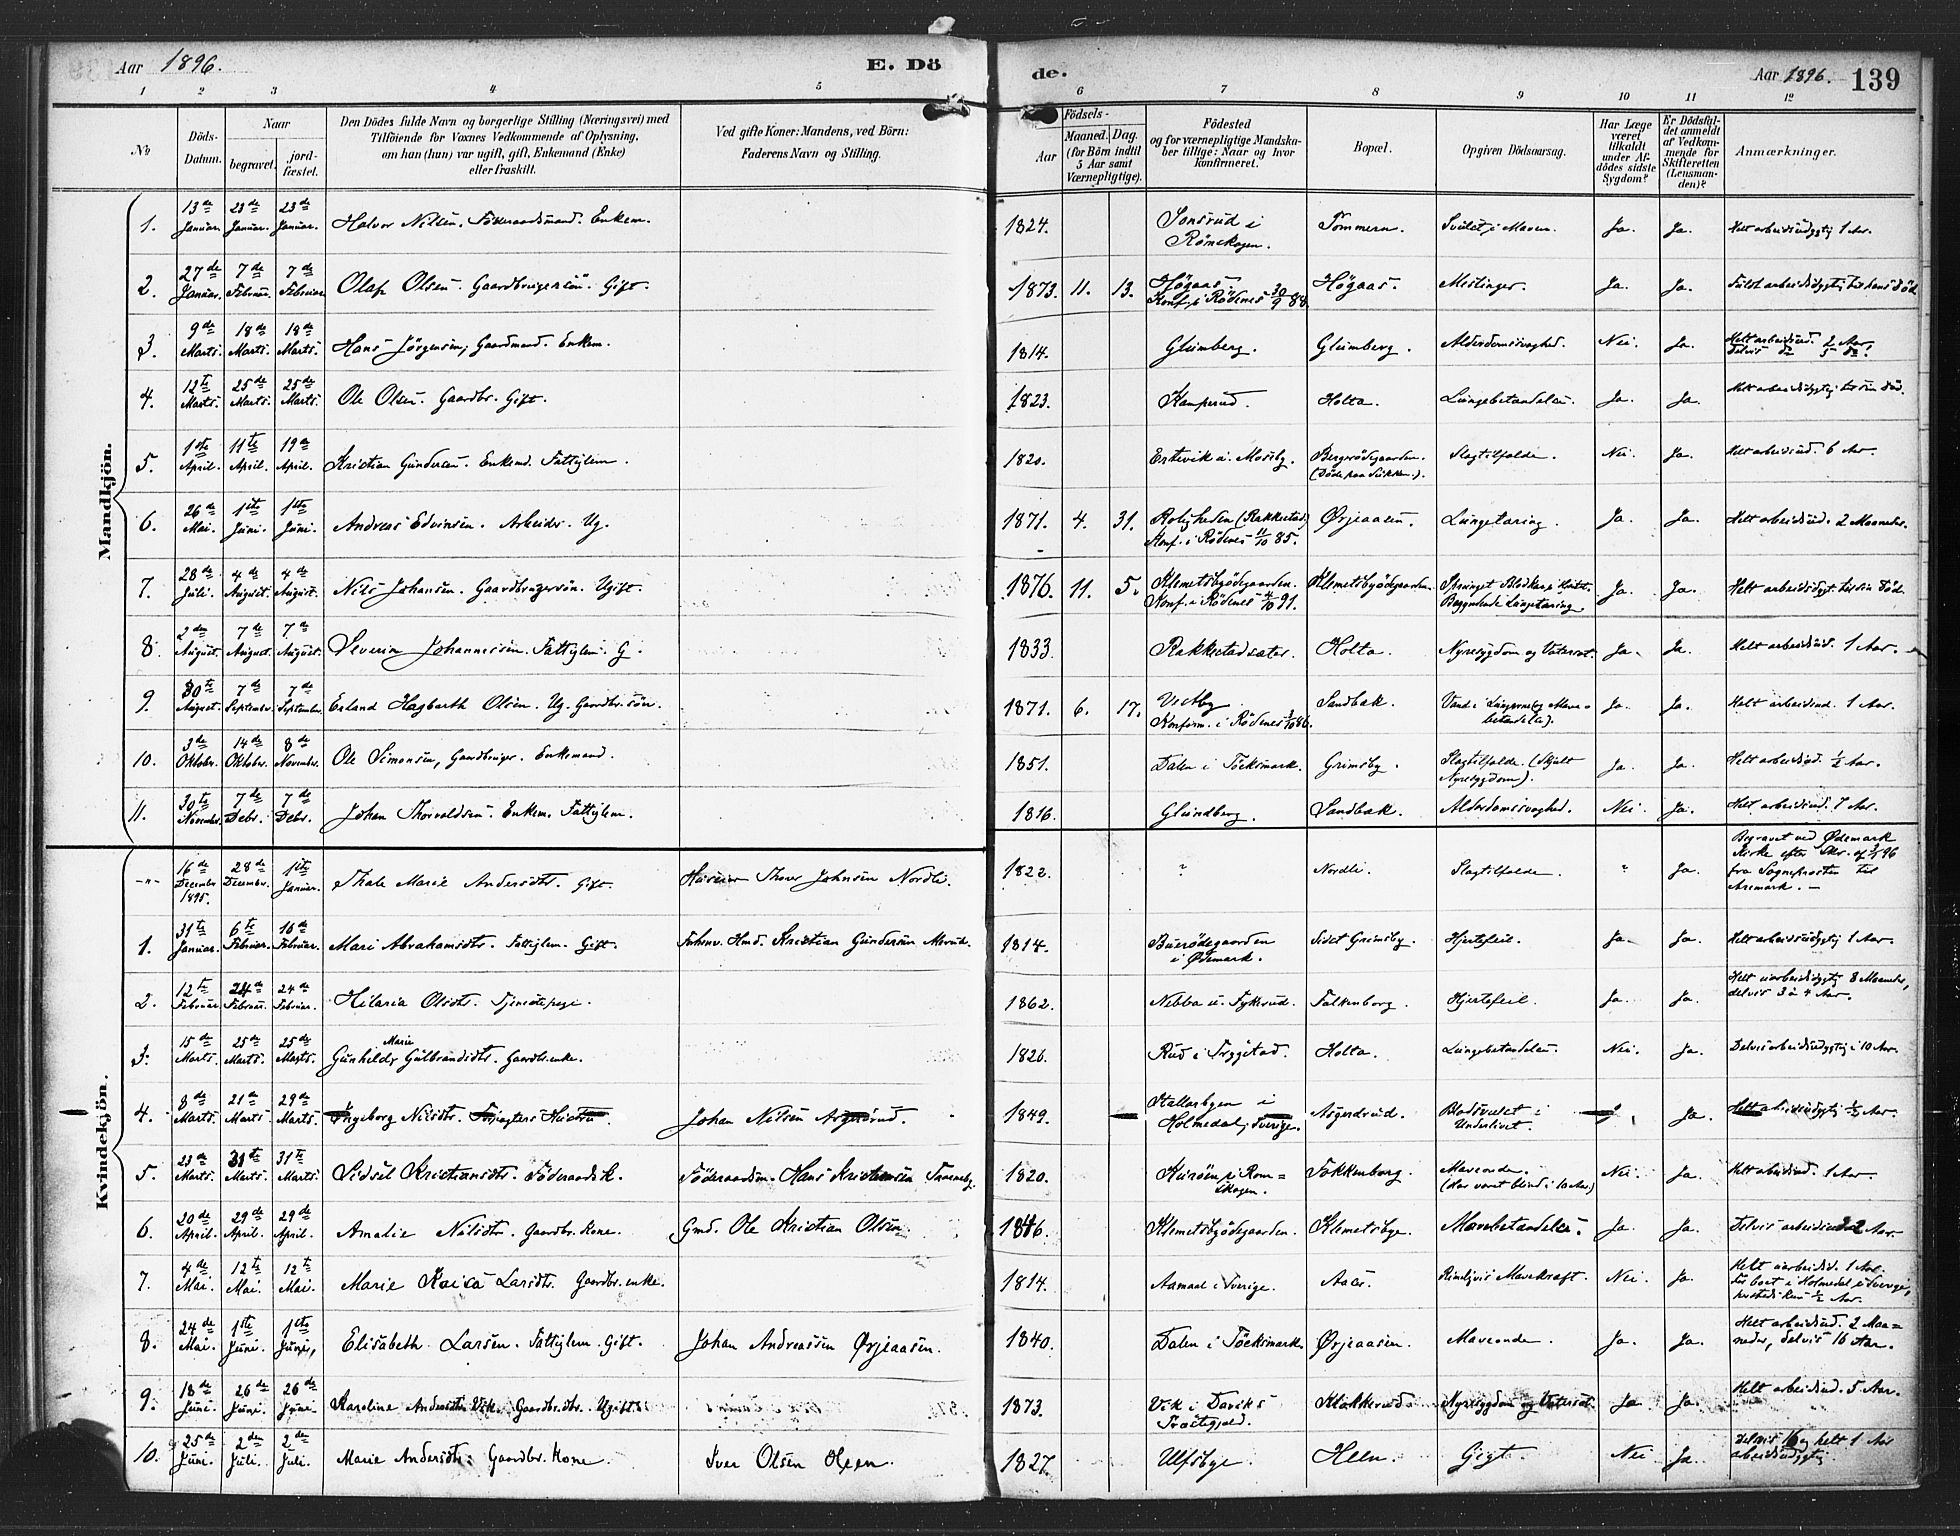 Aar 1896.
E. Dö
de.
Aar 1896.
139
1 2 3 4 5 6 7 8 9 10 11 12
No
Döds-Datum.
Naar
begravet.
jord-fæstet.
Den Dödes fulde Navn og borgerlige Stilling (Næringsvei) med
Tilföiende for Voxnes Vedkommende af Oplysning,
om han (hun) var ugift, gift, Enkemand (Enke)
eller fraskilt.
Ved gifte Koner: Mandens, ved Börn:
Faderens Navn og Stilling.
Födsels-
Aar
Maaned. Dag.
(for Börn indtil
5 Aar samt
Værnepligtige).
Födested
og for værnepligtige Mandska-
ber tillige: Naar og hvor
konfirmeret.
Bopæl.
Opgiven Dödsaarsag.
Har Læge
været
tilkaldt
under Af-
dödes sidste
Sygdom?
Er Dödsfal-
det anmeldt
af Vedkom-
mende for
Skifteretten
(Lensman-
den)?
Anmærkninger.
Mandkjön.
1. 13de Januar. 23de Januar. 23de Januar. Halvor Nilsen. Föderaadsmand. Enkem. 1824. Sonsrud i Römskogen. Tommern. Svulst i Maven. Ja. Ja. Helt arbeidsudygtig 1 Aar.
2. 27de Januar. 7de Februar. 7de Februar. Olaf Olsen. Gaardbrugersön. Gift. 1873. 11. 13. Högaas. Konf. i Rödenes 30/9 88. Högaas. Ja. Ja. Fuldt arbeidsdygtig til hans Död
3. 9de Marts. 18de Marts. 18de Marts. Hans Jörgensen, Gaardmand. Enkem. 1814. Glumberg. Glumberg. Alderdomssvaghed. Nei. Ja. Helt arbeidsud. 2 Aar. Delvis do 5 do.
4. 12te Marts. 25de Marts. 25de Marts. Ole Olsen. Gaardbr. Gift. 1823. Kamperud. Holta. Lungebetændelse. Ja. Ja. Helt arbeidsdygtig til sin Död.
5. 1ste April. 11te April. 19de April. Kristian Gundersen. Enkemd. Fattiglem. 1820. Bergerödegaarden. Slagtilfælde. Nei. Ja. Helt arbeidsud. 6 Aar.
6. 26de Mai. 1ste Juni. 1ste Juni. Andreas Edvinsen. Arbeider. Ug. 1871. 4. 31. Roligheden (Rakkestad) Konf. i Rödenes 11/10 85. Ørjeaasen. Lungetæring. Ja. Ja. Helt arbeidsud. 2 Maaneder.
7. 28de Juli. 4de August. 4de August. Nils Johansen. Gaardbrugersön. Ugift. 1876. 11. 5. Klemetsbyödegaarden. Konf. i Rödenes 4/10 91. Klemetsbyödegaarden. Begyndende Lungetæring. Ja. Ja. Helt arbeidsdygt. til sin Död.
8. 2den August. 7de August. 7de August. Severin Johannesen. Fattiglem. G. 1833. Rakkestadsæter. Holta. Nyresygdom og Vatersot. Ja. Ja. Helt arbeidsud. 1 Aar.
9. 30te August. 7de September. 7de September. Erland Hagbarth Olsen. Ug. Gaardbr. sön. 1871. 6. 17. Visthy. Konfirm. i Rödenes 3/10 86. Sandbæk. Ja. Ja. Helt arbeidsud. 1 Aar.
10. 3de Oktober. 14de Oktober. 8de November. Ole Simonsen, Gaardbruger. Enkemand. 1851. Dalen i Töcksmark. Grimsby. Slagtilfælde. (Skjult Nyresygdom). Ja. Ja. Helt arbeidsud. 1/2 Aar.
11. 30te November. 7de Debr. 7de Debr. Johan Thorvaldsen. Enkem. Fattiglem. 1816. Glundberg. Sandbæk. Alderdomssvaghed. Nei. Ja. Helt arbeidsud. 7 Aar.
Kvindekjön.
-"- 16de December 1895. 28de December. 1ste Januar. Thale Marie Andersdtr. Gift. Husmr Thorer Johnsen Nordli. 1822. " Nordli. Slagtilfælde. " Ja. Begravet ved Ødemark Kirke efter Skr. af 3/1 96 fra Sogneprosten til Aremark. —
1. 31te Januar. 6te Februar. 16de Februar. Mari Abrahamsdtr. Fattiglem. Gift. Kristian Gundersen 1814. Buerödegaarden i Ødemark. Grimsby. Hjertefeil. Ja. Ja. Helt arbeidsudygtig 1 Aar.
2. 12te Februar. 24de Februar. 24de Februar. Hilaria Olsdtr. Tjenestepige. 1862. Nebba u. Tykerud. Falkenborg. Hjertefeil. Ja. Ja. Helt uarbeidsdygtig 8 Maaneder, delvis 3 à 4 Aar.
3. 15de Marts. 25de Marts. 25de Marts. Gunhild Marie Gulbrandsdtr. Gaardbr. enke. 1826. Rud i Trygstad. Holta. Lungebetændelse. Nei. Ja. Delvis arbeidsudygtig i 10 Aar.
4. 8de Marts. 21de Marts. 29de Marts. Ingeborg Nilsdtr. Forpagters Hustru Johan Nilsen Asgerdrud. 1849. Hallerbyen i Holmedal, Sverige. Asgerdrud. Blodsvulst i Underlivet. Ja. Helt arbeidsudygtig 1/2 Aar.
5. 23de Marts. 31te Marts. 31te Marts. Sidsel Kristiansdtr. Föderaadsk. Föderaadsm. Hans Kristensen 1820. Kuröen i Römskogen. Tokkenborg. Maveonde. (Har været blind i 10 Aar.) Nei. Ja. Helt arbeidsud. 1 Aar.
6. 20de April. 29de April. 29de April. Amalie Nilsdtr. Gaardbr. Kone. Gmd. Ole Kristian Olsen 1846. Klemetsbyödegaarden. Klemetsbye. Mavebetændelse. Ja. Ja. Delvis arbeidsud. 2 Aar.
7. 4de Mai. 12te Mai. 12te Mai. Marie Kaisa Larsdtr. Gaardbr. enke. 1814. Aamaal i Sverige. Aaes. Rimligvis Mavekræft. Nei. Ja. Helt uarbeidsd. 1 Aar. Før boet i Holmedal i Sverige, her 1/2 Aar.
8. 24de Mai. 1ste Juni. 1ste Juni. Elisabeth Larsen. Fattiglem. Gift. Johan Andreassen Ørjeaasen. 1840. Dalen i Töcksmark. Ørjeaasen. Maveonde. Ja. Ja. Helt arbeidsud. 2 Maaneder, delvis 16 Aar.
9. 18de Juni. 26de Juni. 26de Juni. Karoline Andersdtr Vik. Gaardbr.dtr. Ugift. 1873. Vik i Daviks Præstegjeld. Klokkerud. Nyresygdom og Vatersot. Ja. Ja. Helt arbeidsud. 5 Aar.
10. 25de Juni. 2den Juli. 2den Juli. Marie Andersdtr. Gaardbr. Kone. Iver Olsen Heen. 1827. Ulfsbye. Heen. Gigt. Nei. Ja. Delvis 16 og helt 1 Aar arbeidsudygtig.